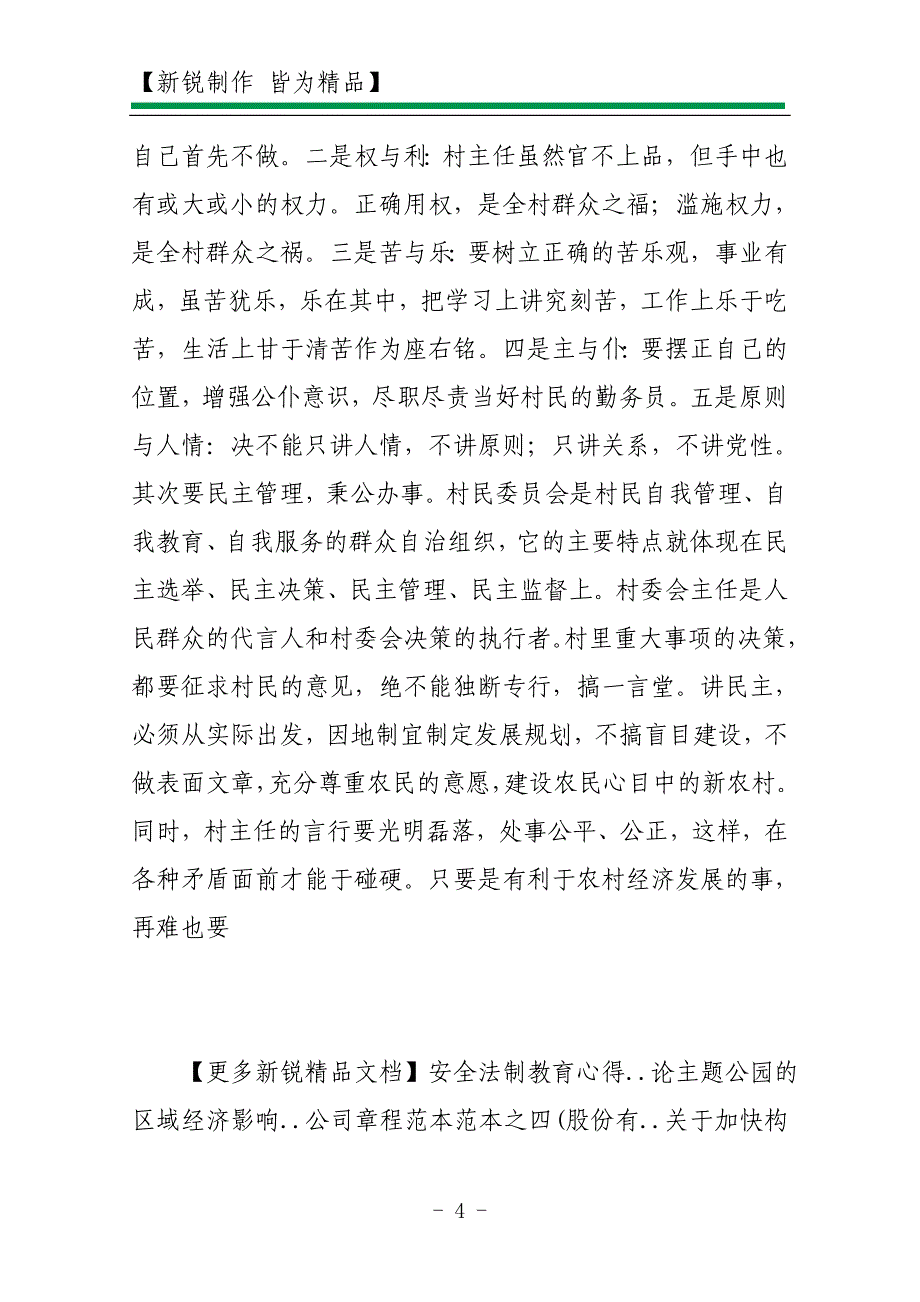 【新锐制作 皆为精品】
自己首先不做。二是权与利：村主任虽然官不上品，但手中也
有或大或小的权力。正确用权，是全村群众之福；滥施权力，
是全村群众之祸。三是苦与乐：要树立正确的苦乐观，事业有
成，虽苦犹乐，乐在其中，把学习上讲究刻苦，工作上乐于吃
苦，生活上甘于清苦作为座右铭。四是主与仆：要摆正自己的
位置，增强公仆意识，尽职尽责当好村民的勤务员。五是原则
与人情：决不能只讲人情，不讲原则；只讲关系，不讲党性。
其次要民主管理，秉公办事。村民委员会是村民自我管理、自
我教育、自我服务的群众自治组织，它的主要特点就体现在民
主选举、民主决策、民主管理、民主监督上。村委会主任是人
民群众的代言人和村委会决策的执行者。村里重大事项的决策，
都要征求村民的意见，绝不能独断专行，搞一言堂。讲民主，
必须从实际出发，因地制宜制定发展规划，不搞盲目建设，不
做表面文章，充分尊重农民的意愿，建设农民心目中的新农村。
同时，村主任的言行要光明磊落，处事公平、公正，这样，在
各种矛盾面前才能于碰硬。只要是有利于农村经济发展的事，
再难也要
【更多新锐精品文档】安全法制教育心得..论主题公园的
区域经济影响..公司章程范本范本之四(股份有..关于加快构
- 4 -